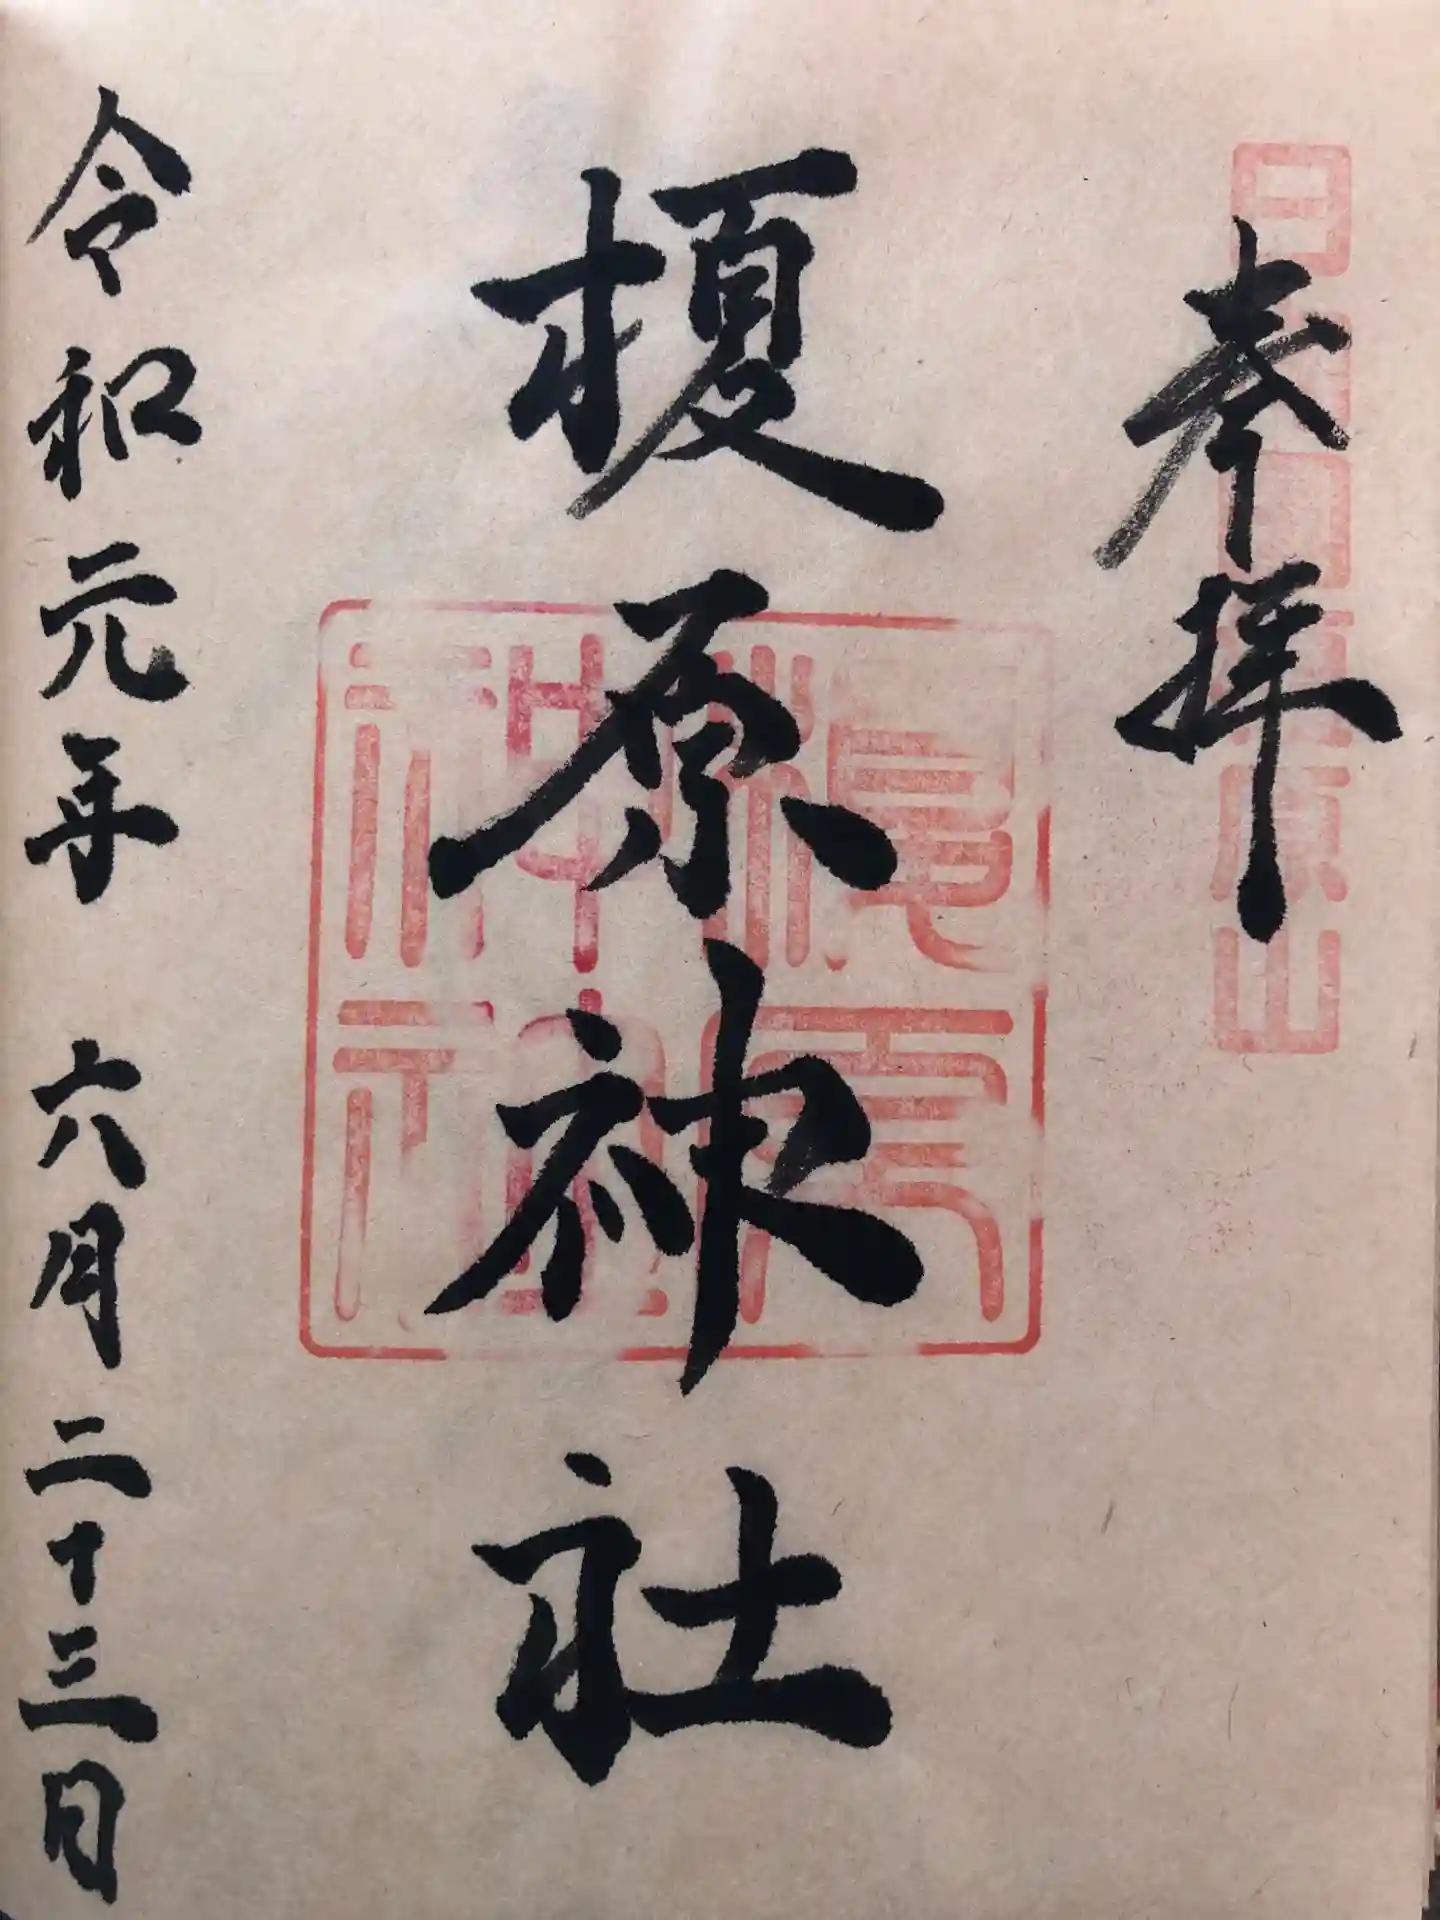 奉拝
榎原神社
榎原
神社
令和元年 六月二十三日